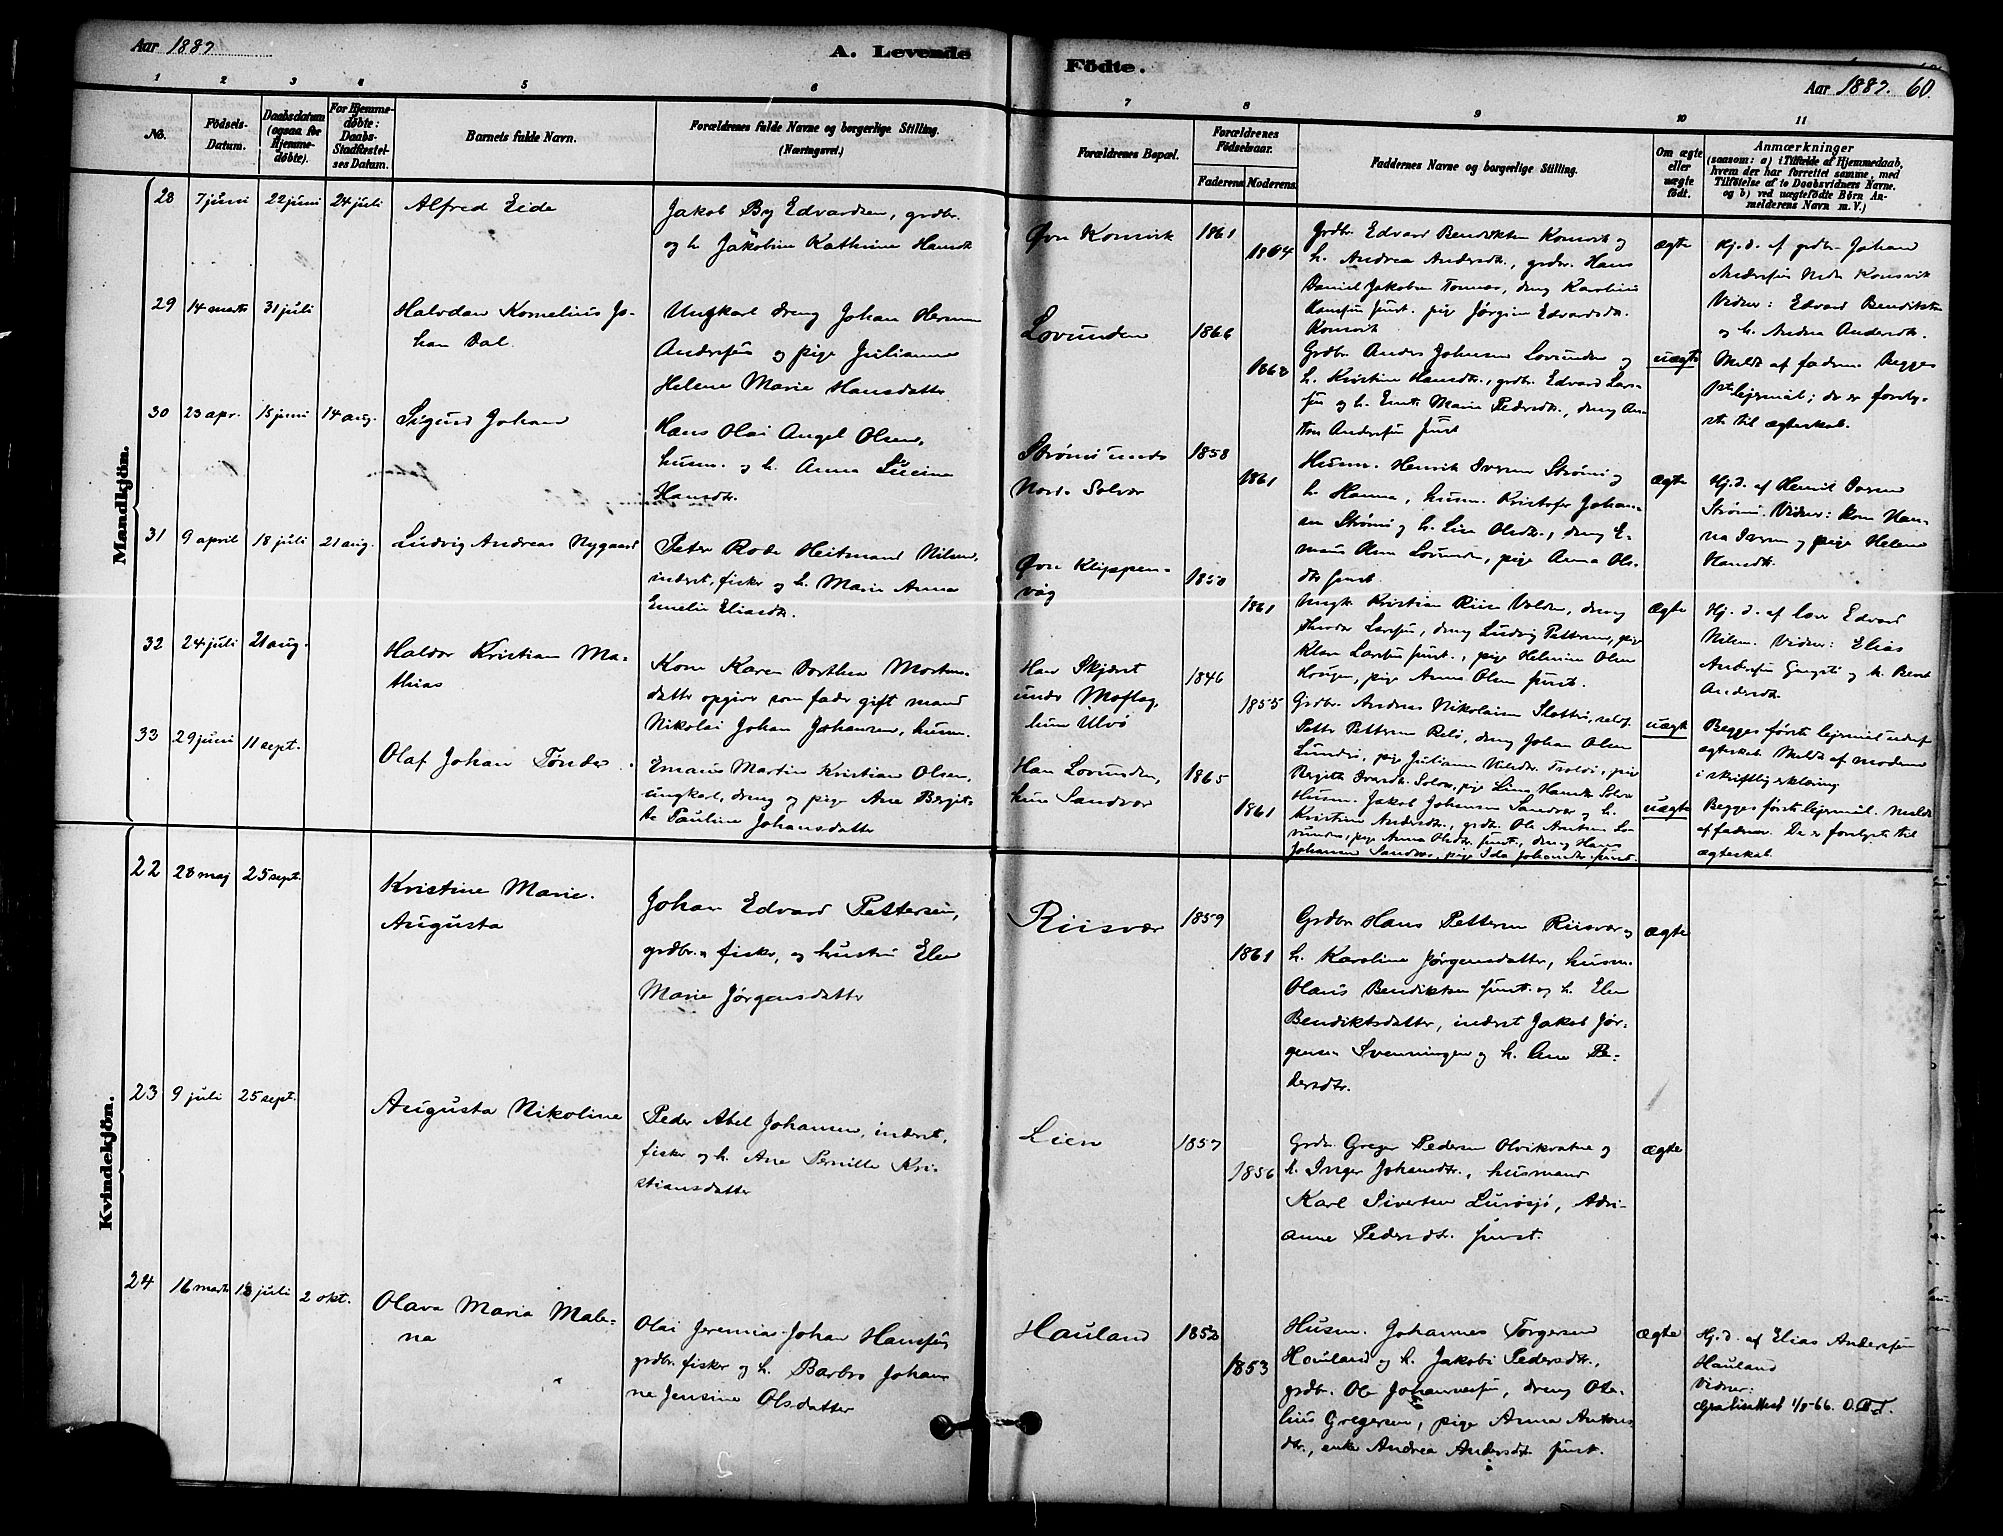 Aar 1887
A. Levende
Födte.
Aar 1887. 60.
1 2 3 4 5 6 7 8 9 10 11
No.
Födsels-
Datum.
Daabsdatum
(ogsaa for
Hjemme-
döbte).
For Hjemme-
döbte:
Daabs-
Stadfæstel-
ses Datum.
Barnets fulde Navn.
Forældrenes fulde Navne og borgerlige Stilling.
(Næringsvei.)
Forældrenes Bopæl.
Forældrenes
Födselsaar.
Faderens. Moderens.
Faddernes Navne og borgerlige Stilling.
Om ægte
eller
uægte
födt.
Anmærkninger
(saasom: a) i Tilfælde af Hjemmedaab,
hvem der har forrettet samme, med
Tilföielse af to Daabsvidners Navne.
og b) ved uægtefödte Börn An-
melderens Navn m. V.)
Mandkjön.
28 7 juni 22 juni 24 juli
Alfred Eide
Jakob By Edvardsen, grdbr.
og h. Jakobine Kathrine Hansdtr
Øvr Konsvik
1861
1864
Grdbr. Edvard Bendiktsen Konsvik og
h. Andrea Andersdtr., grdbr. Hans
Daniel Jakobsen Tonnes, dreng Karolius
Hansen smst. pige Jørgine Edvardsdtr.
Konsvik
ægte
Hj. d. af grdbr. Johan
Andersen Nedr Konsvik
Vidner: Edvard Bendiktsen
og h. Andrea Andersdtr.
29 14 marts 31 juli
Halvdan Kornelius Jo-
han Dal.
Ungkarl dreng Johan Herman
Andersen og pige Julianne
Helene Marie Hansdatter
Lovunden
1866
1868
Grdbr Anders Johnsen Lovunden og
h. Kristine Hansdtr., grdbr. Edvard Lar-
sen og h. Marie Pedersdtr., dreng An-
ton Andersen smst
uægte
Meldt af faderen. Begges
1ste lejermål; de er forlo-
vede til ægteskab.
30 23 apr. 15 juni 14 aug.
Sigurd Johan
Hans Olai Angel Olsen,
husm. og h. Anna Lucine
Hansdtr.
Strømø under
Nord-Solvær
1858
1861
Husm. Henrik Iversen Strømø og
h. Hanna, husm. Kristofer Johan-
sen Strømø og h. Line Olsdtr., dreng E-
maus Lovunden, pige Anna Ols-
dtr smst.
ægte
Hj. d. af Henrik Iversen
Strømø. Vidner: kone Han-
na Iversen og pige Helene
Hansdtr.
31 9 april 18 juli 21 aug.
Ludvig Andreas Nygaard
Peter Rode Heitmand Nilsen,
inderst, fisker og h. Marie Anna
Emelie Eliasdtr.
Øvr Klippen-
våg
1850
1861
Ungk. Kristian Riis Valen, dreng
Theodor Larsen, dreng Ludvig Pettersen, pige
Klara Larsen smst., pige Helmine Olsen
Haugen, pige Anna Olsen smst.
ægte
Hj. d. af lærer Edvard
Nilsen. Vidner: Elias
Andersen og h. Berit
Andersdtr.
32 24 juli 21 aug.
Haldor Kristian Ma-
thias
Kone Karen Dorthea Mortens-
datter opgiver som fader gift mand
Nikolai Johan Johansen, husm.
Han Skjæret
under Moflag,
hun Ulvø
1846
1855
Grdbr. Andreas Nikolaisen Slottø,
Petter Pettersen Relø, dreng Johan Olsen
Lundø, pige Julianna Nilsdtr., pige
Bergitte Iversdtr. Solvær, pige Lina Hansdtr Solvær
uægte
Begges første lejermål udenfor
ægteskab. Meldt af moderen
i skriftlig erklæring
33 29 juni 11 sept.
Olaf Johan Tønder
Emaus Martin Kristian Olsen,
ungkarl, dreng og pige Ane Bergit-
te Pauline Johansdatter
Han Lovunden,
hun Sandvær
1865
1861
Husm. Jakob Johansen Sandvær og h.
Kristine Andersdtr., grdbr. Ole Antsen Lo-
vunden, pige Anna Olsdtr. smst., dreng Hans
Johansen Sandvær, pige Ida Johansdtr. smst.
uægte
Begges første lejermål. Meldt
af faderen. De er forlovet til
ægteskab.
Kvindekjön.
22 28 maj 25 sept.
Kristine Marie
Augusta
Johan Edvard Pettersen,
grdbr. fisker, og hustru Elen
Marie Jørgensdatter
Riisvær
1859
1861
Grdbr Hans Pettersen Riisvær og
h. Karoline Jørgensdatter, husm.
Olaus Bendiktsen smst. og h. Elen
Bendiktsdatter, inderst Jakob Jør-
gensen Svenningen og h. Ane Pe-
dersdtr.
ægte
23 9 juli 25 sept.
Augusta Nikoline
Peder Abel Johansen, inderst,
fisker og h. Ane Pernille Kri-
stiansdatter
Lien
1857
1856
Grdbr. Greger Pedersen Olvikvatne og
h. Inger Johansdtr., husmand
Karl Sivertsen Lurøsjø, Adri-
anne Pedersdtr. smst.
ægte
24 16 marts 13 juli 2 okt.
Olava Maria Male-
na
Olai Jeremias Johan Hansen,
grdbr. fisker og h. Barbro Johan-
ne Jensine Olsdatter
Hauland
1852
1853
Husm. Johannes Torgersen
Hauland og h. Jakobi Pedersdtr.,
grdbr. Ole Johannesen, dreng Ote-
lius Gregersen, pige Anna Antons-
dtr., enke Andrea Andersdtr smst.
ægte
Hj. d. af Elias Andersen
Hauland
Vidner:
Gratisattest 1/8-66.